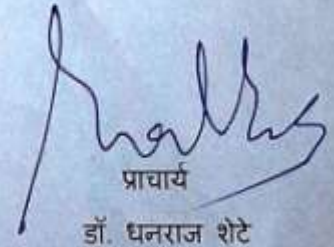 प्राचार्य
डॉ. धनराज शेटे